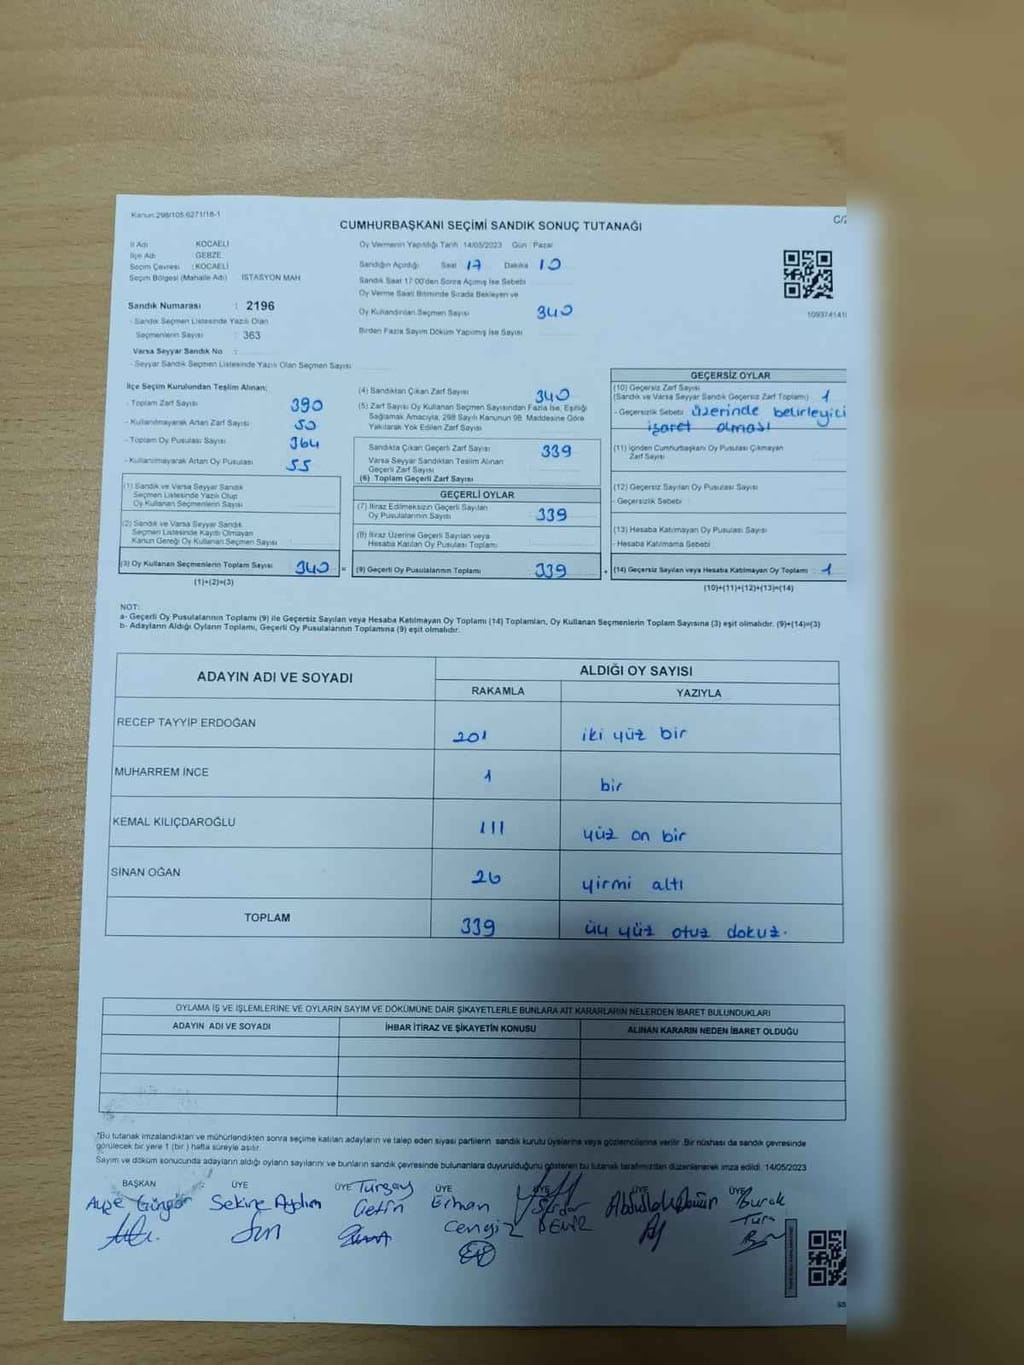 Kanun:298/105.6271/18-1
C/2
CUMHURBAŞKANI SEÇİMİ SANDIK SONUÇ TUTANAĞI
İl Adı KOCAELİ
İlçe Adı : GEBZE
Seçim Çevresi : KOCAELİ
Seçim Bölgesi (Mahalle Adı) İSTASYON MAH
Oy Vermenin Yapıldığı Tarih 14/05/2023 Gün Pazar
Sandığın Açıldığı Saat 17 Dakika 10
Sandık Saat 17:00'den Sonra Açılmış İse Sebebi
Oy Verme Saati Bitiminde Sırada Bekleyen ve
Oy Kullandırılan Seçmen Sayısı 340
Birden Fazla Sayım Döküm Yapılmış İse Sayısı
Sandık Numarası : 2196
- Sandık Seçmen Listesinde Yazılı Olan
Seçmenlerin Sayısı : 363
Varsa Seyyar Sandık No :
- Seyyar Sandık Seçmen Listesinde Yazılı Olan Seçmen Sayısı
İlçe Seçim Kurulundan Teslim Alınan;
- Toplam Zarf Sayısı 390
- Kullanılmayarak Artan Zarf Sayısı 50
- Toplam Oy Pusulası Sayısı 364
- Kullanılmayarak Artan Oy Pusulası 55
(1) Sandık ve Varsa Seyyar Sandık
Seçmen Listesinde Yazılı Olup
Oy Kullanan Seçmenlerin Sayısı
(2) Sandık ve Varsa Seyyar Sandık
Seçmen Listesinde Kaydı Olmayan
Kanun Gereği Oy Kullanan Seçmen Sayısı
(3) Oy Kullanan Seçmenlerin Toplam Sayısı 340 =
(1)+(2)=(3)
(4) Sandıktan Çıkan Zarf Sayısı 340
(5) Zarf Sayısı Oy Kullanan Seçmen Sayısından Fazla İse, Eşitliği
Sağlamak Amacıyla, 298 Sayılı Kanunun 98. Maddesine Göre
Yakılarak Yok Edilen Zarf Sayısı
Sandıkta Çıkan Geçerli Zarf Sayısı 339
Varsa Seyyar Sandıktan Teslim Alınan
Geçerli Zarf Sayısı
(6) Toplam Geçerli Zarf Sayısı
GEÇERLİ OYLAR
(7) İtiraz Edilmeksizin Geçerli Sayılan
Oy Pusulalarının Sayısı 339
(8) İtiraz Üzerine Geçerli Sayılan veya
Hesaba Katılan Oy Pusulası Toplamı
(9) Geçerli Oy Pusulalarının Toplamı 339 +
GEÇERSİZ OYLAR
(10) Geçersiz Zarf Sayısı
(Sandık ve Varsa Seyyar Sandık Geçersiz Zarf Toplamı) 1
- Geçersizlik Sebebi üzerinde belirleyici
işaret olması
(11) İçinden Cumhurbaşkanı Oy Pusulası Çıkmayan
Zarf Sayısı
(12) Geçersiz Sayılan Oy Pusulası Sayısı
- Geçersizlik Sebebi
(13) Hesaba Katılmayan Oy Pusulası Sayısı
- Hesaba Katılmama Sebebi
(14) Geçersiz Sayılan veya Hesaba Katılmayan Oy Toplamı 1
(10)+(11)+(12)+(13)=(14)
NOT:
a- Geçerli Oy Pusulalarının Toplamı (9) ile Geçersiz Sayılan veya Hesaba Katılmayan Oy Toplamı (14) Toplamları, Oy Kullanan Seçmenlerin Toplam Sayısına (3) eşit olmalıdır. (9)+(14)=(3)
b- Adayların Aldığı Oyların Toplamı, Geçerli Oy Pusulalarının Toplamına (9) eşit olmalıdır.
ADAYIN ADI VE SOYADI
ALDIĞI OY SAYISI
RAKAMLA YAZIYLA
RECEP TAYYİP ERDOĞAN 201 iki yüz bir
MUHARREM İNCE 1 bir
KEMAL KILIÇDAROĞLU 111 yüz on bir
SİNAN OĞAN 26 yirmi altı
TOPLAM 339 üç yüz otuz dokuz.
OYLAMA İŞ VE İŞLEMLERİNE VE OYLARIN SAYIM VE DÖKÜMÜNE DAİR ŞİKAYETLERLE BUNLARA AİT KARARLARIN NELERDEN İBARET BULUNDUKLARI
ADAYIN ADI VE SOYADI İHBAR İTİRAZ VE ŞİKAYETİN KONUSU ALINAN KARARIN NEDEN İBARET OLDUĞU
*Bu tutanak imzalandıktan ve mühürlendikten sonra seçime katılan adayların ve talep eden siyasi partilerin sandık kurulu üyelerine veya gözlemcilerine verilir. Bir nüshası da sandık çevresinde
görülecek bir yere 1 (bir) hafta süreyle asılır.
Sayım ve döküm sonucunda adayların aldığı oyların sayılarını ve bunların sandık çevresinde bulunanlara duyurulduğunu gösteren bu tutanak tarafımızdan düzenlenerek imza edildi. 14/05/2023
BAŞKAN ÜYE ÜYE ÜYE ÜYE ÜYE
Ayşe Güngör Sekine Aydın Turgay Erhan Serdar Burak
Çetin Cengiz DENİZ